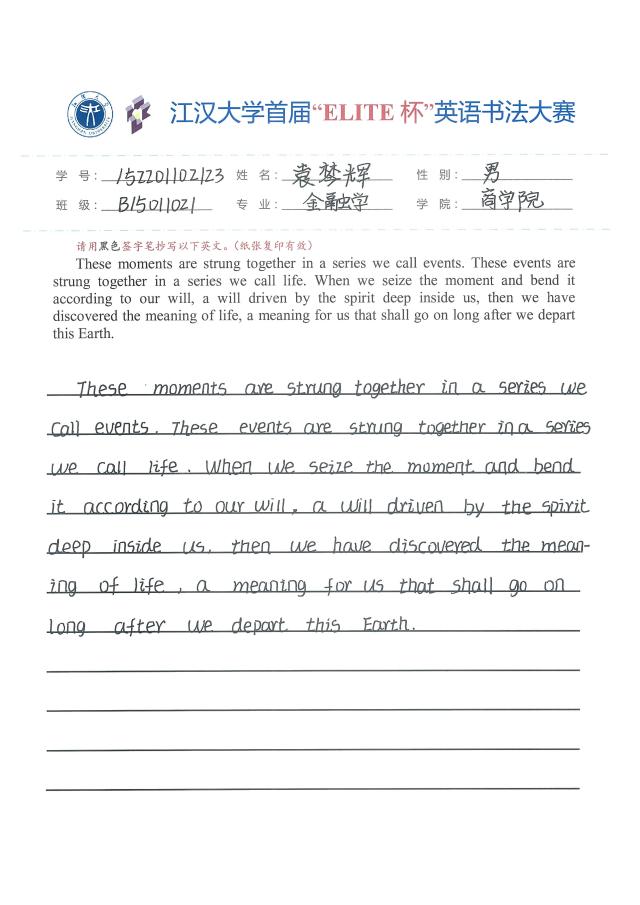 江汉大学首届“ELITE 杯”英语书法大赛
学 号: 152201102123 姓 名: 袁梦辉 性 别: 男
班 级: B15011021 专 业: 金融学 学 院: 商学院
请用黑色签字笔抄写以下英文。(纸张复印有效)
These moments are strung together in a series we call events. These events are
strung together in a series we call life. When we seize the moment and bend it
according to our will, a will driven by the spirit deep inside us, then we have
discovered the meaning of life, a meaning for us that shall go on long after we depart
this Earth.
These moments are strung together in a series we
call events. These events are strung together in a series
we call life. When we seize the moment and bend
it according to our will, a will driven by the spirit
deep inside us, then we have discovered the mean-
ing of life, a meaning for us that shall go on
long after we depart this Earth.